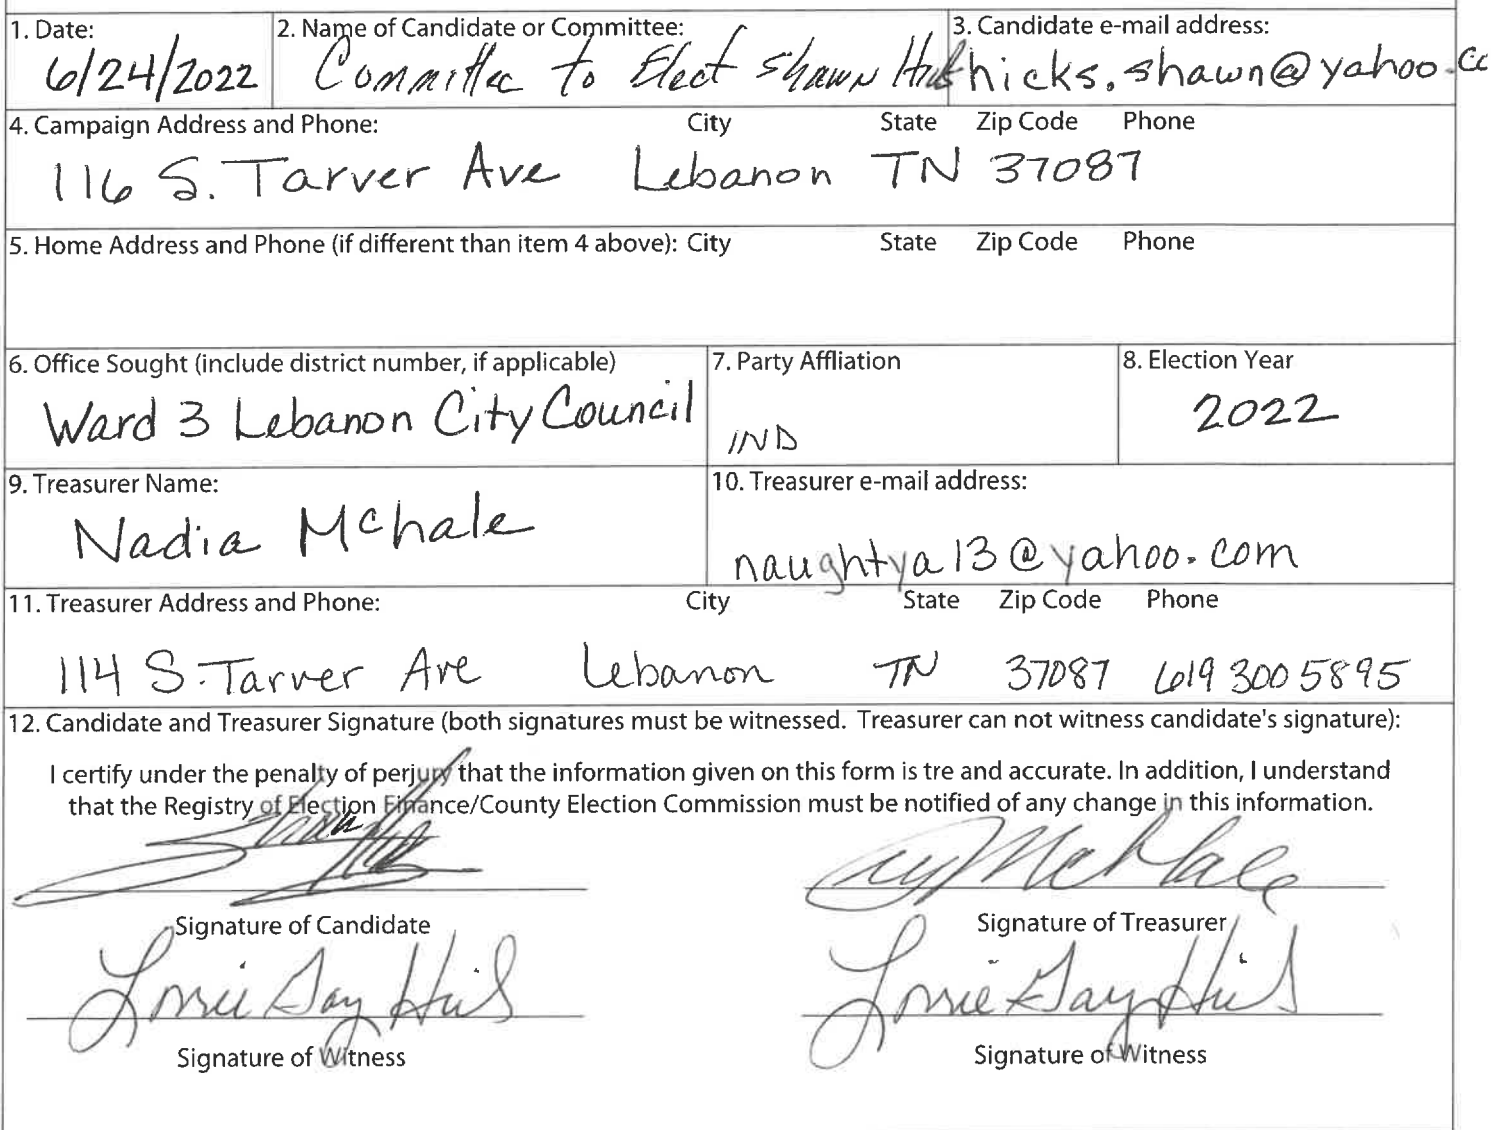 1. Date: 2. Name of Candidate or Committee: 3. Candidate e-mail address:
6/24/2022 Committee to Elect Shawn hicks.shawn@yahoo.co
4. Campaign Address and Phone: City State Zip Code Phone
116 S. Tarver Ave Lebanon TN 37087
5. Home Address and Phone (if different than item 4 above): City State Zip Code Phone
6. Office Sought (include district number, if applicable) 7. Party Affliation 8. Election Year
Ward 3 Lebanon City Council IND 2022
9. Treasurer Name: 10. Treasurer e-mail address:
Nadia McHale naughtya13@yahoo.com
11. Treasurer Address and Phone: City State Zip Code Phone
114 S. Tarver Ave Lebanon TN 37087 619 300 5895
12. Candidate and Treasurer Signature (both signatures must be witnessed. Treasurer can not witness candidate's signature):
I certify under the penalty of perjury that the information given on this form is tre and accurate. In addition, I understand
that the Registry of Election Finance/County Election Commission must be notified of any change in this information.
McHale
Signature of Candidate Signature of Treasurer
Lorrie Gay Lorrie Gay
Signature of Witness Signature of Witness